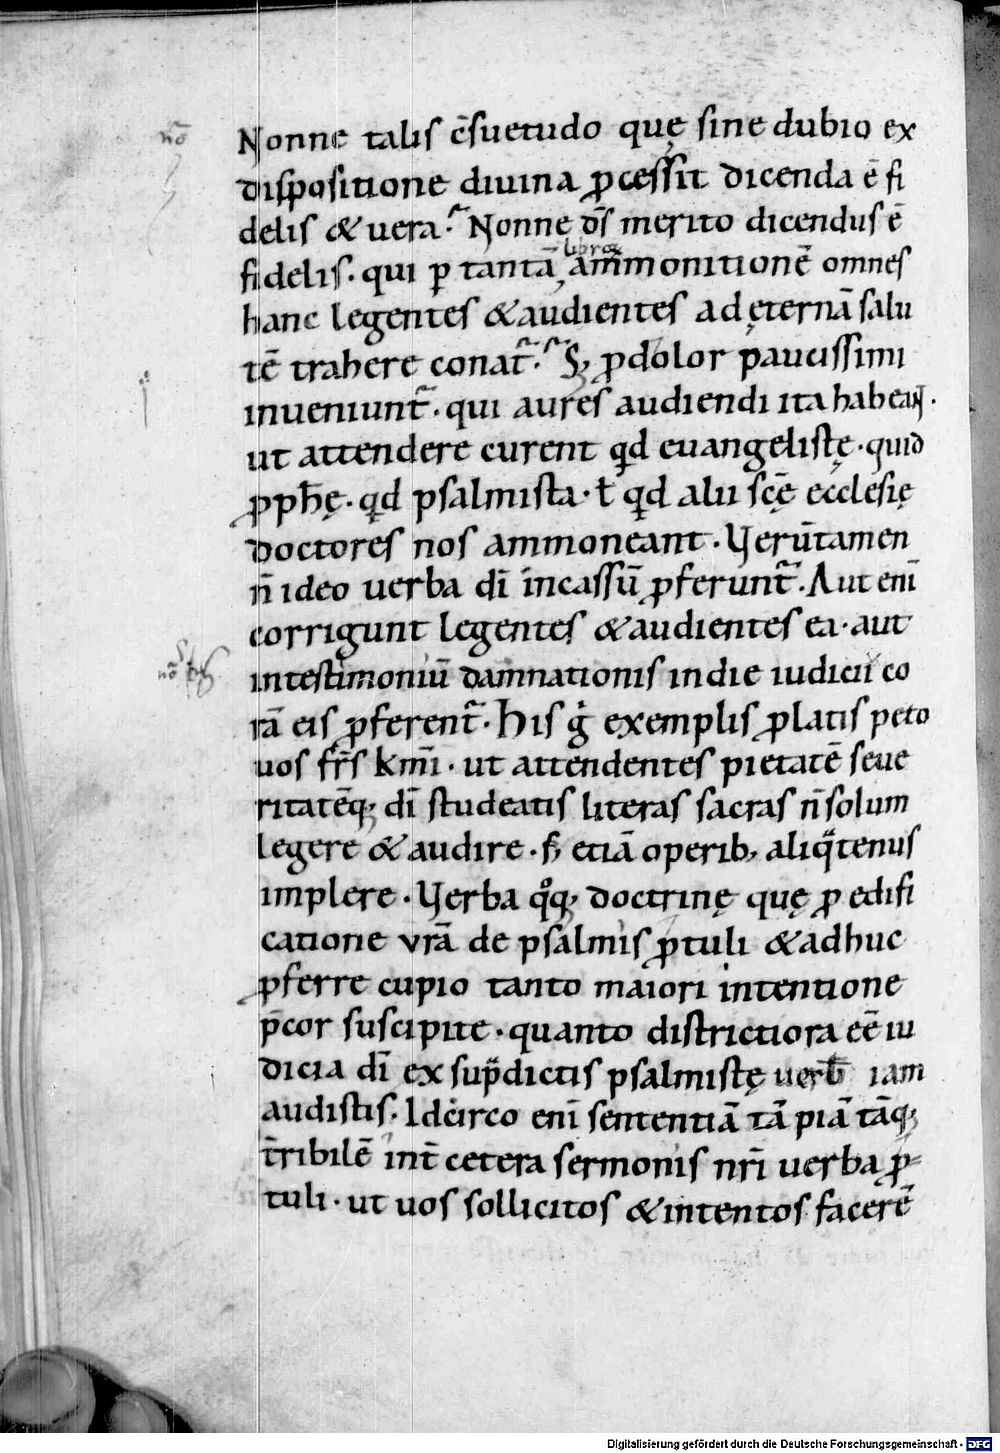 nō
Nonne talis c̄suetudo quę sine dubio ex
dispositione diuina ꝓcessit dicenda ē fi
delis & uera. Nonne d̄s merito dicendus ē
librorꝫ
fidelis. qui ꝑ tantā ammonitionē omnes
hanc legentes & audientes ad ęternā salu
tē trahere conat᷑. Sꝫ ꝓ dolor paucissimi
inueniunt᷑. qui aures audiendi ita habeant.
ut attendere curent qd euangelistę. quid
ꝓpħę. qd psalmista. ł qd alii sc̄ę ecclesię
doctores nos ammoneant. Verūtamen
n̄ ideo uerba dī incassū ꝓferunt᷑. Aut enī
corrigunt legentes & audientes ea. aut
nō
in testimoniū damnationis in die iudicii co
rā eis ꝓferent᷑. His g̊ exemplis ꝓlatis peto
uos fr̄s kmī. ut attendentes pietatē seue
ritatēqꝫ dī studeatis literas sacras n̄ solum
legere & audire. s; etiā operibꝫ aliqᵃtenus
implere. Verba qͦqꝫ doctrinę quę ꝓ edifi
catione vr̄a de psalmis ꝓtuli & adhuc
ꝓferre cupio tanto maiori intentione
p̄cor suscipite. quanto districtiora eē iu
dicia dī ex sup̄dictis psalmistę uerƀ iam
audistis. Idcirco enī sententiā tā piā tāqꝫ
t̄ribilē int̄ cetera sermonis nr̄i uerba ꝓ-
tuli. ut uos sollicitos & intentos facerē
Digitalisierung gefördert durch die Deutsche Forschungsgemeinschaft - DFG